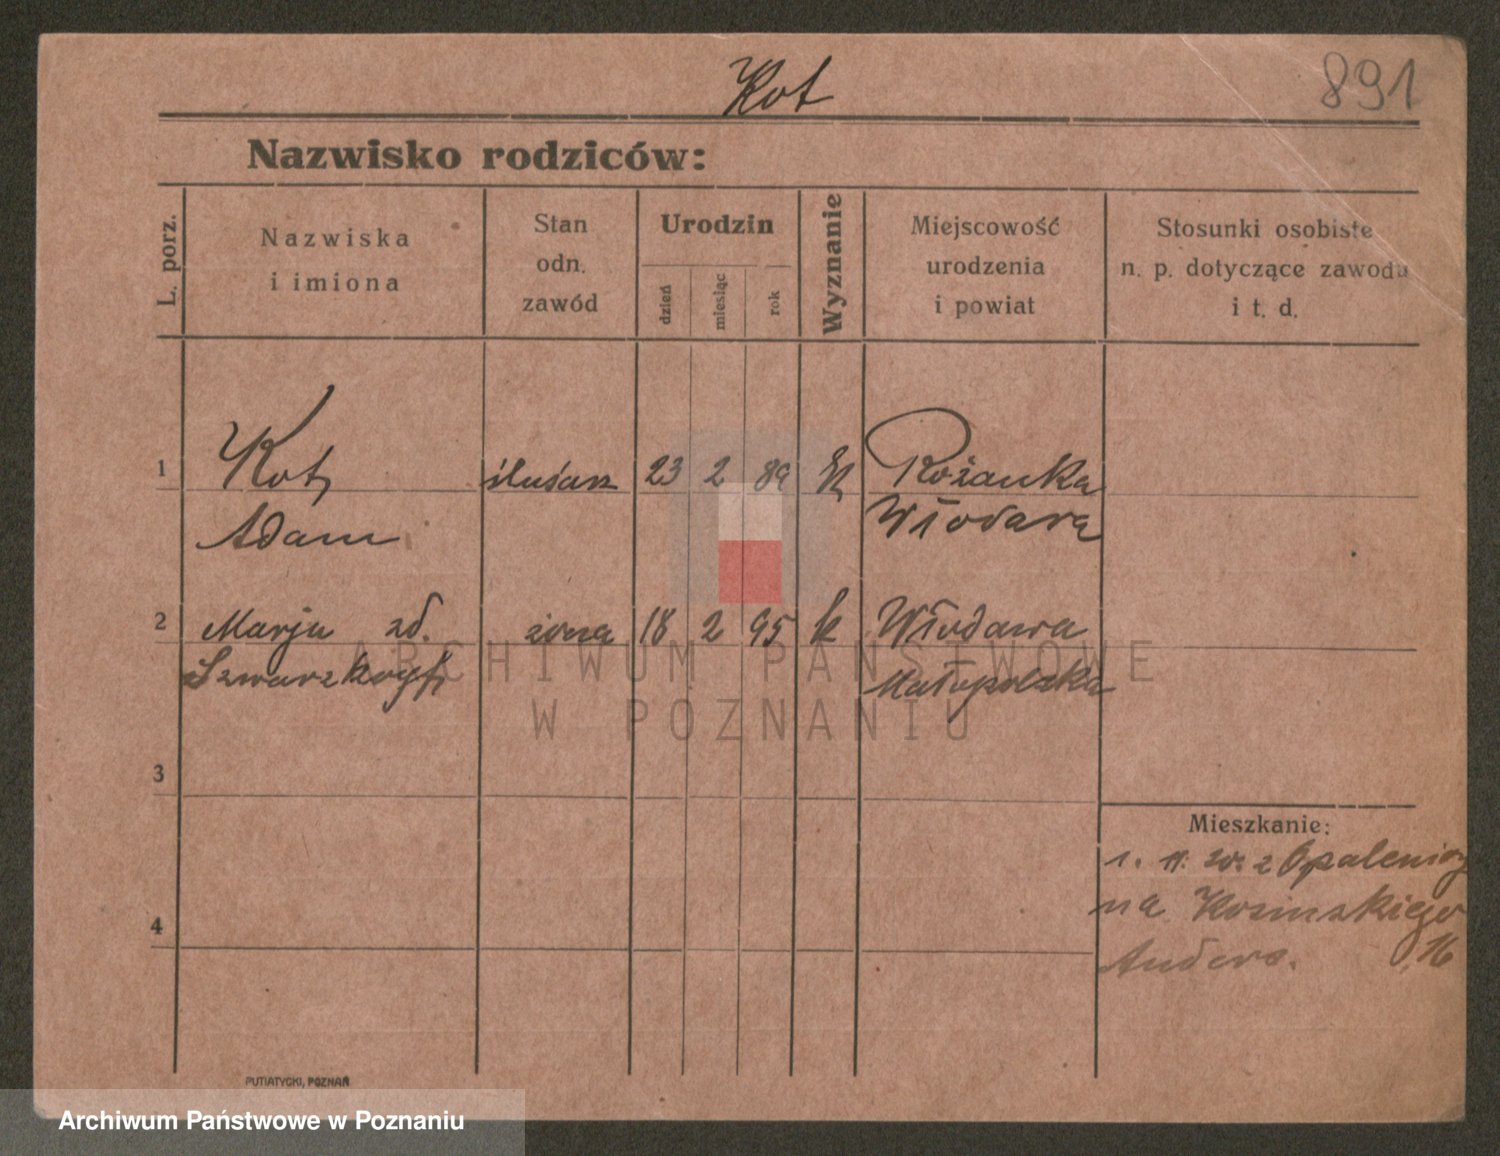 Kot
891
Nazwisko rodziców:
L. porz.
Nazwiska
i imiona
Stan
odn.
zawód
Urodzin
dzień
miesiąc
rok
Wyznanie
Miejscowość
urodzenia
i powiat
Stosunki osobiste
n. p. dotyczące zawodu
i t. d.
1
Kot
Adam
ślusarz
23 2 89
Rożanka
Włodawa
2
Marja zd.
żona
18 2 95
k
Włodawa
Szwarzkopf
Małopolska
ARCHIWUM PAŃSTWOWE
W POZNANIU
3
4
Mieszkanie:
z Opalenicy
na Kosinskiego
16
PUTIATYCKI, POZNAŃ
Archiwum Państwowe w Poznaniu